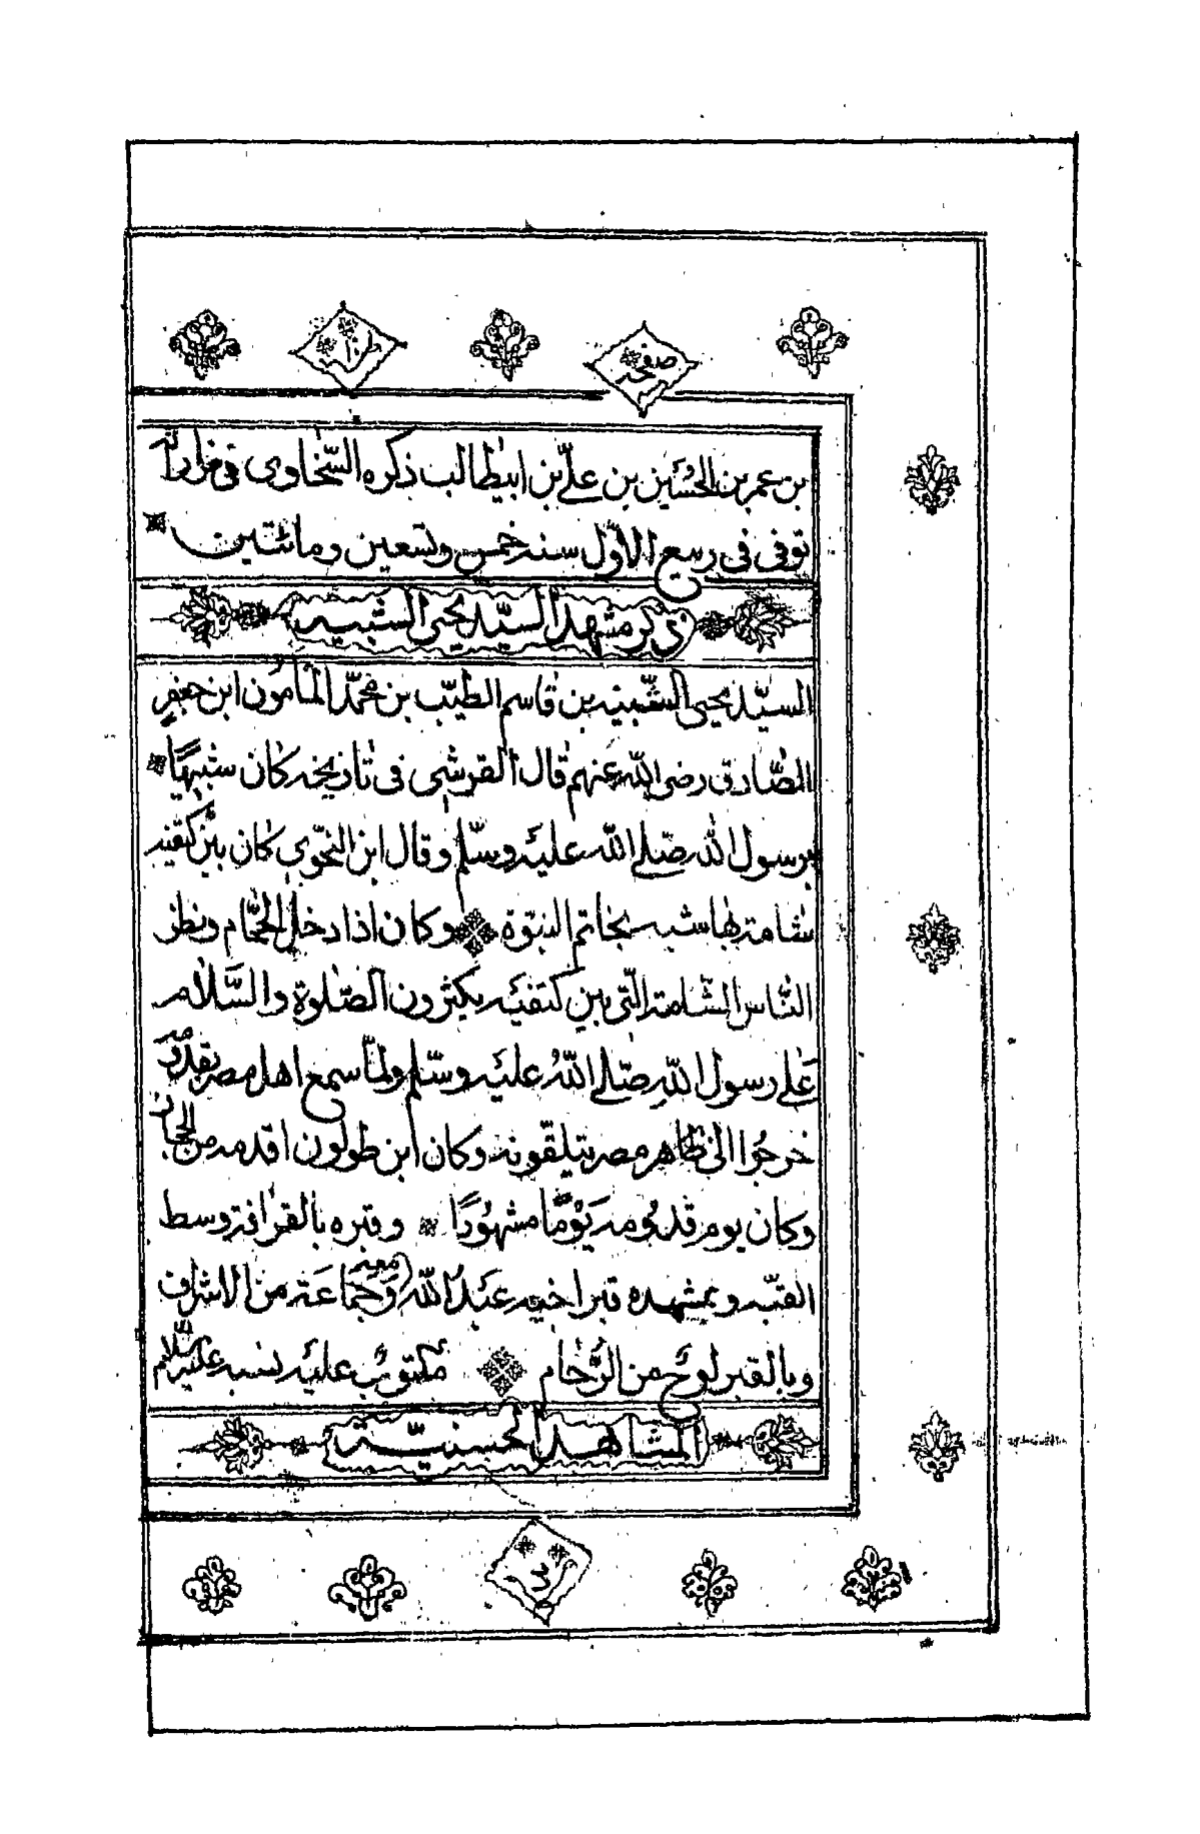 صفحه
بن عمر بن الحُسَين بن علىّ بن ابيطالب ذكره السّخاوى فى مزاراته
توفى فى ربيع الاوّل سنه خمس وتسعين ومائتين
ذكر مشهد السيّد يحيى الشبيه
السيّد يحيى الشّبيه بن قاسم الطيّب بن محمّد المأمون ابن جعفرٍ
الصّادق رضى اللّه عنهم قال القرشى فى تاريخه كان شبيهًا
برسول اللّه صلّى اللّه عليه وسلّم وقال ابن النحّوى كان بين كتفيه
شامة لها شبه بخاتم النبوّة وكان اذا دخل الحمّام ونظر
النّاس الشّامة الّتى بين كتفيه يكثرون الصّلوة والسَّلام
عَلى رسول اللّهِ صلّى اللّهُ عليه وسلّم ولمّا سمع اهل مصر بقدومه
خرجُوا الى ظاهر مصر يتلقّونه وكان ابن طولون اقدمه من الحجاز
وكان يوم قدُومه يَوْمًا مشهُورًا وقبره بالقرافة وسط
القبّه وبمشهده قبر اخيه عَبدُ اللّه وَجماعَة معه من الاشراف
وبالقبر لوحٌ من الرُّخام مكتوبٌ عليه نسبه عليه السّلام
المشاهد الحسنيّة